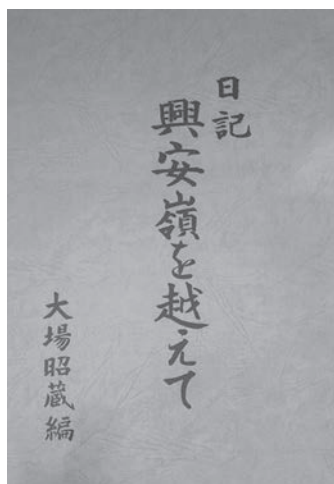 日記
興安嶺を越えて
大場昭蔵編